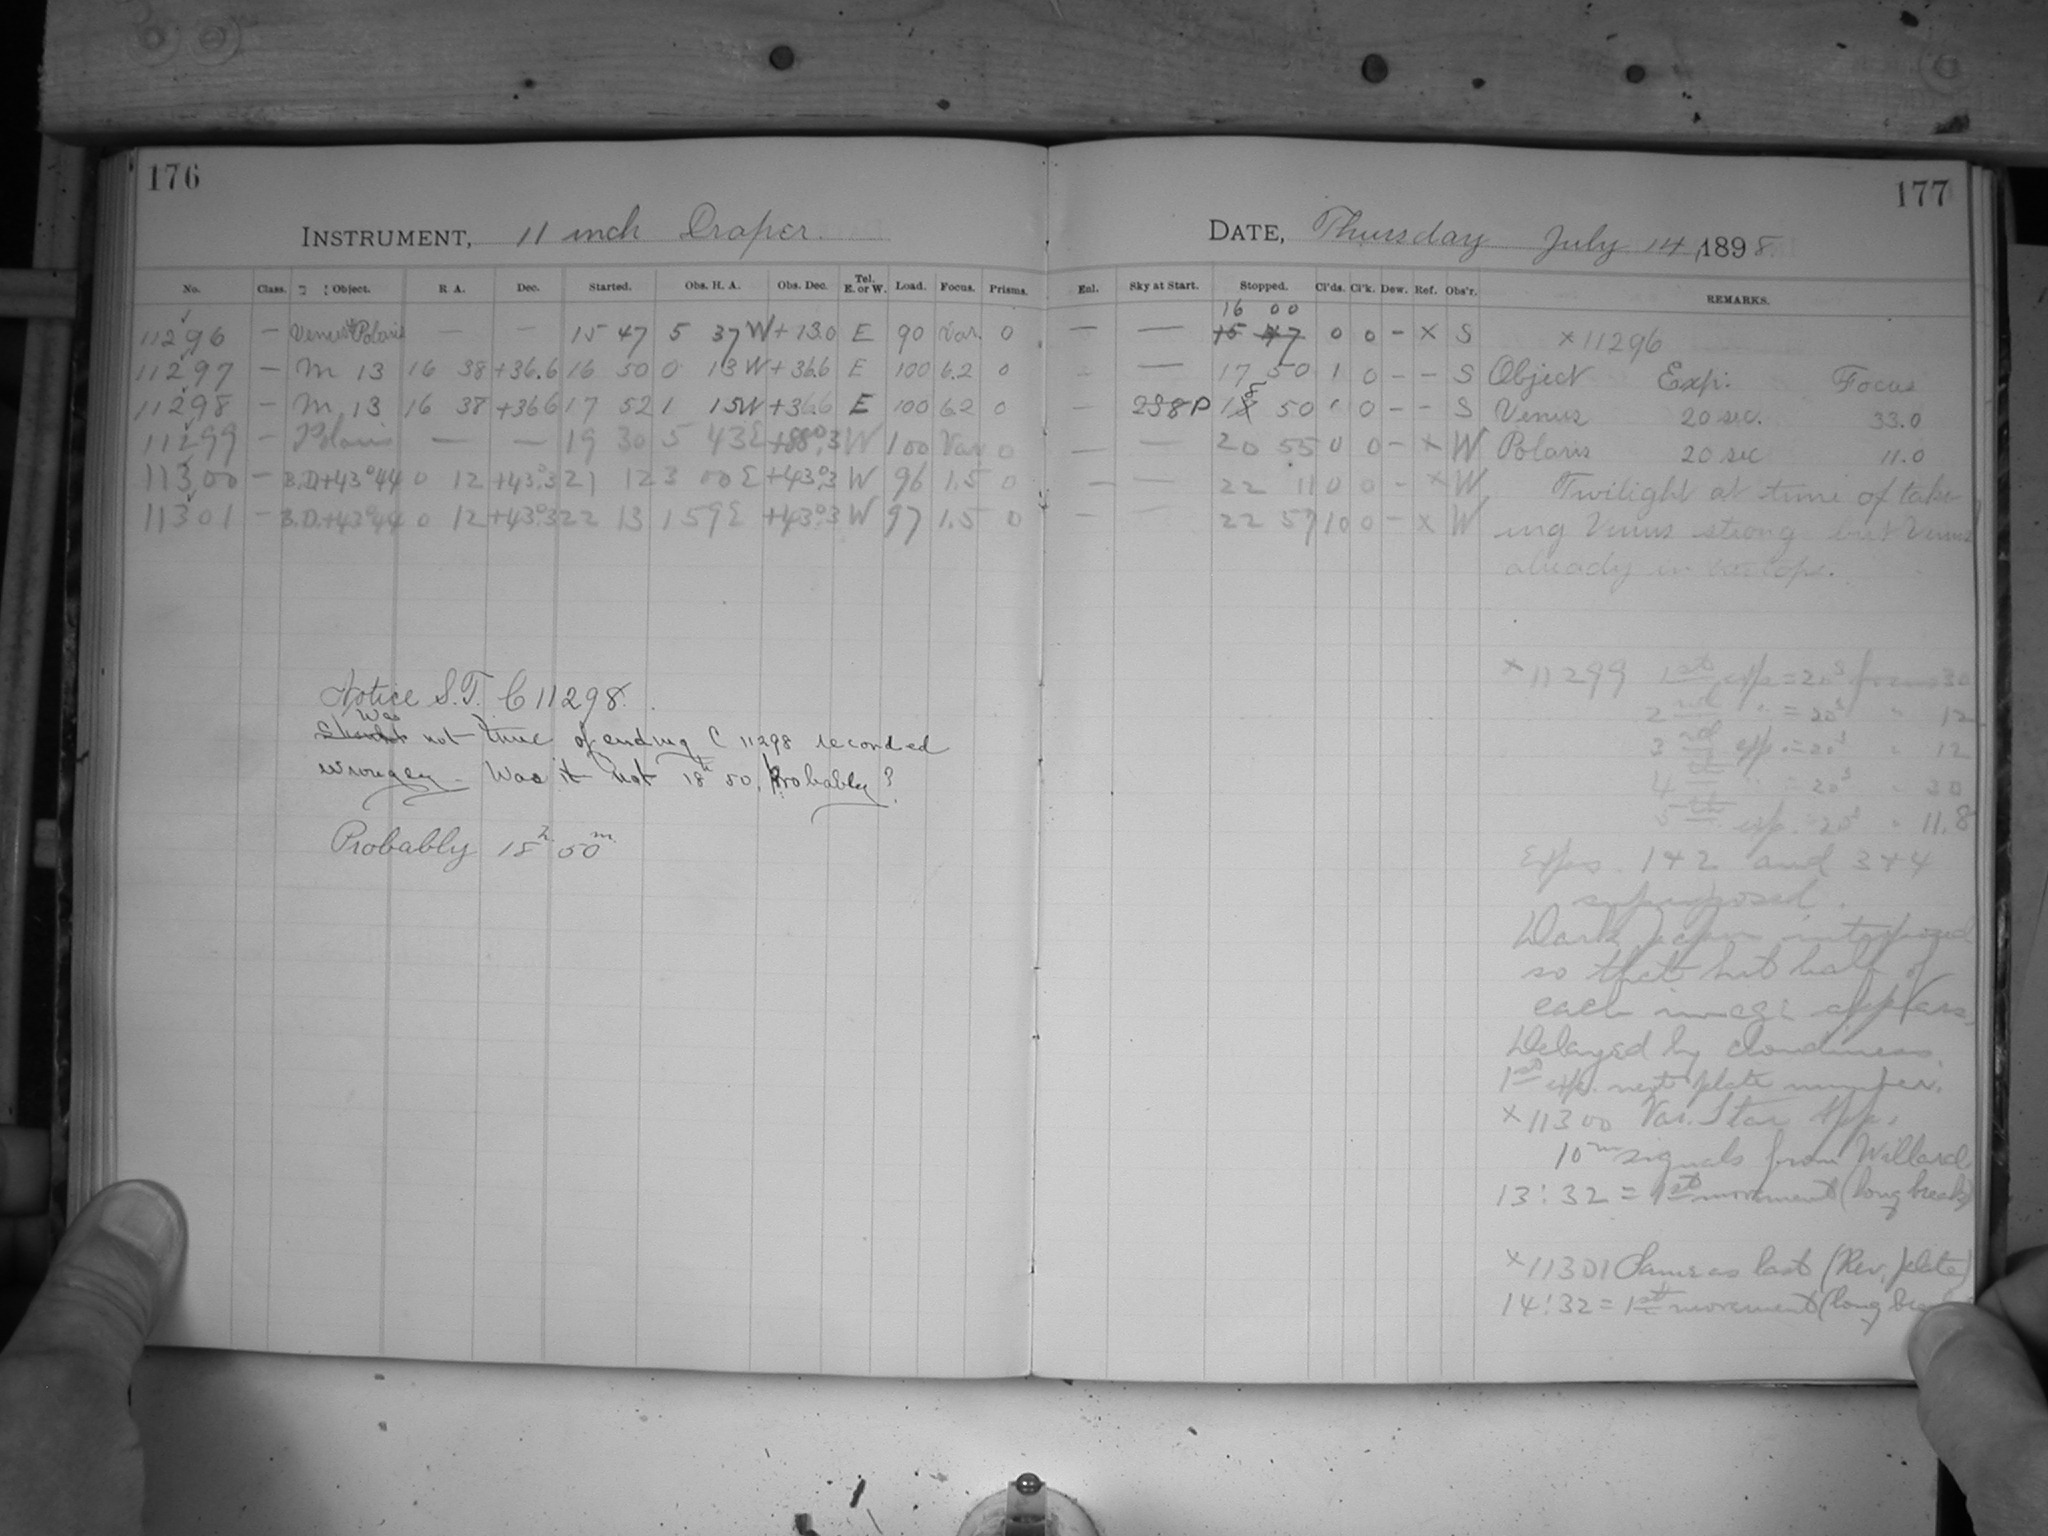 176
INSTRUMENT, 11 inch Draper.
No. Class. Object. R A. Dec. Started. Obs. H. A. Obs. Dec. Tel. E. or W. Load. Focus. Prisms.
11296 — Venus & Polaris — — 15 47 5 37 W +13.0 E 90 Var. 0
11297 — M 13 16 38 +36.6 16 50 0 13 W +36.6 E 100 6.2 0
11298 — M 13 16 38 +36.6 17 52 1 15 W +36.6 E 100 6.2 0
11299 — Polaris — — 19 30 5 43 E +88°.3 W 100 Var 0
11300 — B.D.+43°44 0 12 +43°.3 21 12 3 00 E +43°.3 W 96 1.5 0
11301 — B.D.+43°44 0 12 +43°.3 22 13 1 59 E +43°.3 W 97 1.5 0
Notice S.T. C 11298.
Was not time of ending C 11298 recorded
wrongly. Was it not 18h 50, Probably?
Probably 18h 50m
177
DATE, Thursday July 14, 1898.
Enl. Sky at Start. Stopped. Cl'ds. Cl'k. Dew. Ref. Obs'r. REMARKS.
16 00
— — 15 47 0 0 – × S
– — 17 50 1 0 – – S
– 2S8P 18 50 1 0 – – S
— — 20 55 0 0 – × W
— — 22 11 0 0 – × W
— — 22 57 10 0 – × W
×11296
Object Exp. Focus
Venus 20 sec. 33.0
Polaris 20 sec 11.0
Twilight at time of tak-
ing Venus strong but Venus
already in
×11299 1st exp = 20s focus 30
2nd " = 20s " 12
3rd exp. = 20s " 12
4th " = 20s " 30
5th exp. 20s " 11.8
Exps. 1+2 and 3+4
superposed.
Dark paper interposed
so that but half of
each image appears.
Delayed by cloudiness.
1st exp. next plate number.
×11300 Var. Star App.
10m signals from Willard
13:32 = 1st movement (long break)
×11301 Same as last (Rev. plate)
14:32 = 1st movement (long